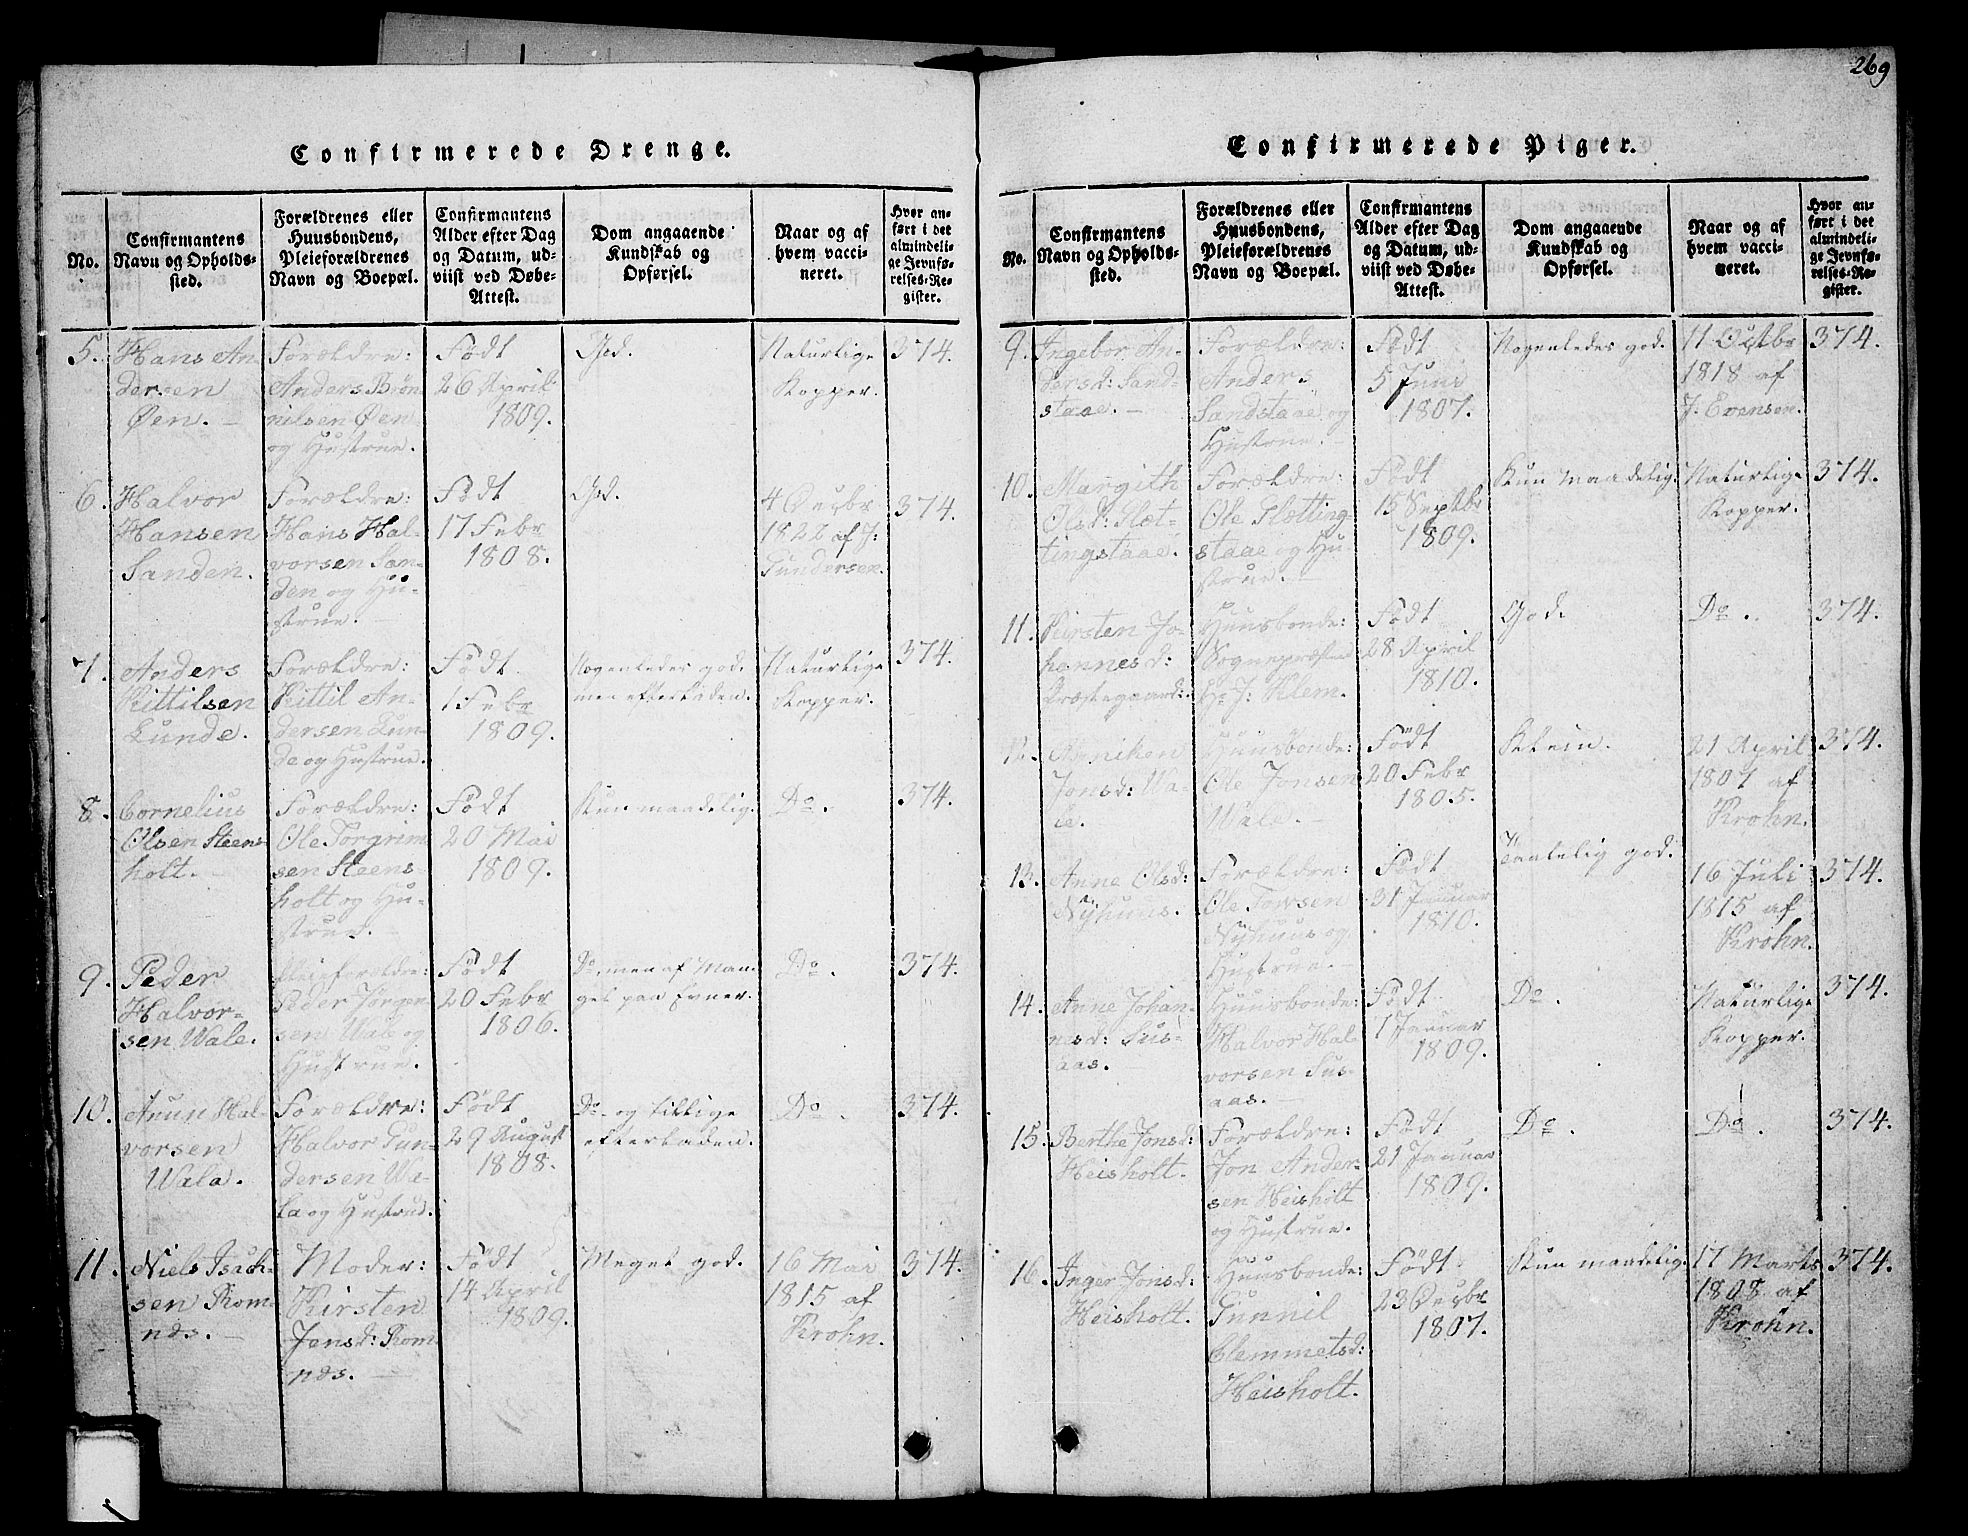 269
Confirmerede Drenge.
No.
Confirmantens
Navn og Opholds-
sted.
Forældrenes eller
Huusbondens,
Pleieforældrenes
Navn og Boepæl.
Confirmantens
Alder efter Dag
og Datum, ud-
viist ved Døbe-
Attest.
Dom angaaende
Kundskab og
Opførsel.
Naar og af
hvem vacci-
neret.
Hvor an-
ført i det
almindeli-
ge Jevnfø-
relses-Re-
gister.
5.
Hans An-
dersen
Øen.
Forældre:
Anders Brön-
nilsen Øen
og Hustrue.
Født
26 April
1809.
God.
Naturlige
Kopper.
374.
6.
Halvor
Hansen
Sanden.
Forældre:
Hans Hal-
vorsen San-
den og Hu-
strue.
Født
17 Febr
1808.
God.
4 Decbr
1822 af J:
Gundersen.
374.
7.
Anders
Kittilsen
Lunde.
Forældre:
Kittil An-
dersen Lun-
de og Hustrue.
Født
1 Febr
1809.
Nogenledes god.
men efterladen.
Naturlige
Kopper.
374.
8.
Cornelius
Olsen Steens-
holt.
Forældre:
Ole Torgrim-
sen Steens-
holt og Hu-
strue.
Født
20 Mai
1809.
Kun maadelig.
Do.
374.
9.
Peder
Halvor-
sen Wale.
Pleieforældre:
Peder Jörgen-
sen Wale og
Hustrue.
Født
20 Febr
1806.
Do, men af Man-
gel paa Evner.
Do.
374.
10.
Anun Hal-
vorsen
Wala.
Forældre:
Halvor Gun-
dersen Wa-
la og Hustrue.
Født
29 August
1808.
Do og tillige
efterladen.
Do.
374.
11.
Niels Isach-
sen Rom-
nds.
Moder:
Kirsten
Jensd: Rom-
nds.
Født
14 April
1809.
Meget god.
16 Mai
1815 af
Krohn.
374.
Confirmerede Piger.
No.
Confirmantens
Navn og Opholds-
sted.
Forældrenes eller
Huusbondens,
Pleieforældrenes
Navn og Boepæl.
Confirmantens
Alder efter Dag
og Datum, ud-
viist ved Døbe-
Attest.
Dom angaaende
Kundskab og
Opførsel.
Naar og af
hvem vacci-
neret.
Hvor an-
ført i det
almindeli-
ge Jevnfø-
relses-Re-
gister.
9.
Ingebor An-
dersd: Sand-
staae.
Forældre:
Anders
Sandstaae og
Hustrue.
Født
5 Juni
1807.
Nogenledes god.
11 Octbr
1818 af
J. Evensen.
374.
10.
Margith
Olsd: Slæt-
tingstaae.
Forældre:
Ole Slætting-
staae og Hu-
strue.
Født
15 Septbr
1809.
Kun maadelig.
Naturlige
Kopper.
374.
11.
Kirsten Jo-
hannesd:
Præstegaard:
Huusbonde:
Sognepræsten
Hr J: Klem.
Født
28 April
1810.
God.
Do.
374.
12.
Anniken
Jonsd: Wa-
le.
Huusbonde:
Ole Jonsen
Wale.
Født
20 Febr
1805.
Klein.
21 April
1807 af
Krohn.
374.
13.
Anne Olsd:
Nÿhuus.
Forældre:
Ole Towsen
Nÿhuus og
Hustrue.
Født
31 Januar
1810.
Taalelig god.
16 Juli
1815 af
Krohn.
374.
14.
Anne Johan-
nesd: Sus-
aas.
Huusbonde:
Halvor Hal-
vorsen Sus-
aas.
Født
1 Januar
1809.
Do.
Naturlige
Kopper.
374.
15.
Berthe Jonsd:
Heisholt.
Forældre:
Jon Ander-
sen Heisholt
og Hustrue.
Født
21 Januar
1809.
Do.
Do.
374.
16.
Inger Jonsd:
Heisholt.
Huusbonde:
Gunnil
Clemmetsd:
Heisholt.
Født
23 Decbr
1807.
Kun maadelig.
17 Marts
1808 af
Krohn.
374.